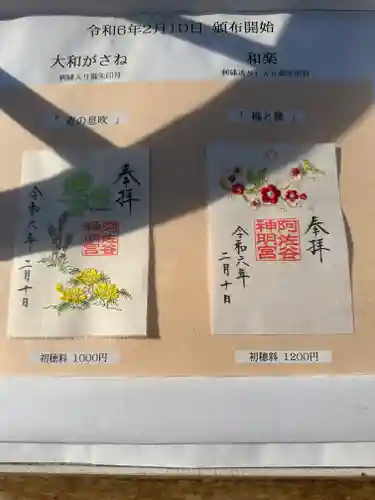 令和6年2月10日 頒布開始
大和がさね
刺繍入り御朱印符
「 春の息吹 」
奉拝
阿佐谷
神明宮
令和六年
二月十日
初穂料 1000円
和楽
「 梅と鶯 」
奉拝
阿佐谷
神明宮
令和六年
二月十日
初穂料 1200円